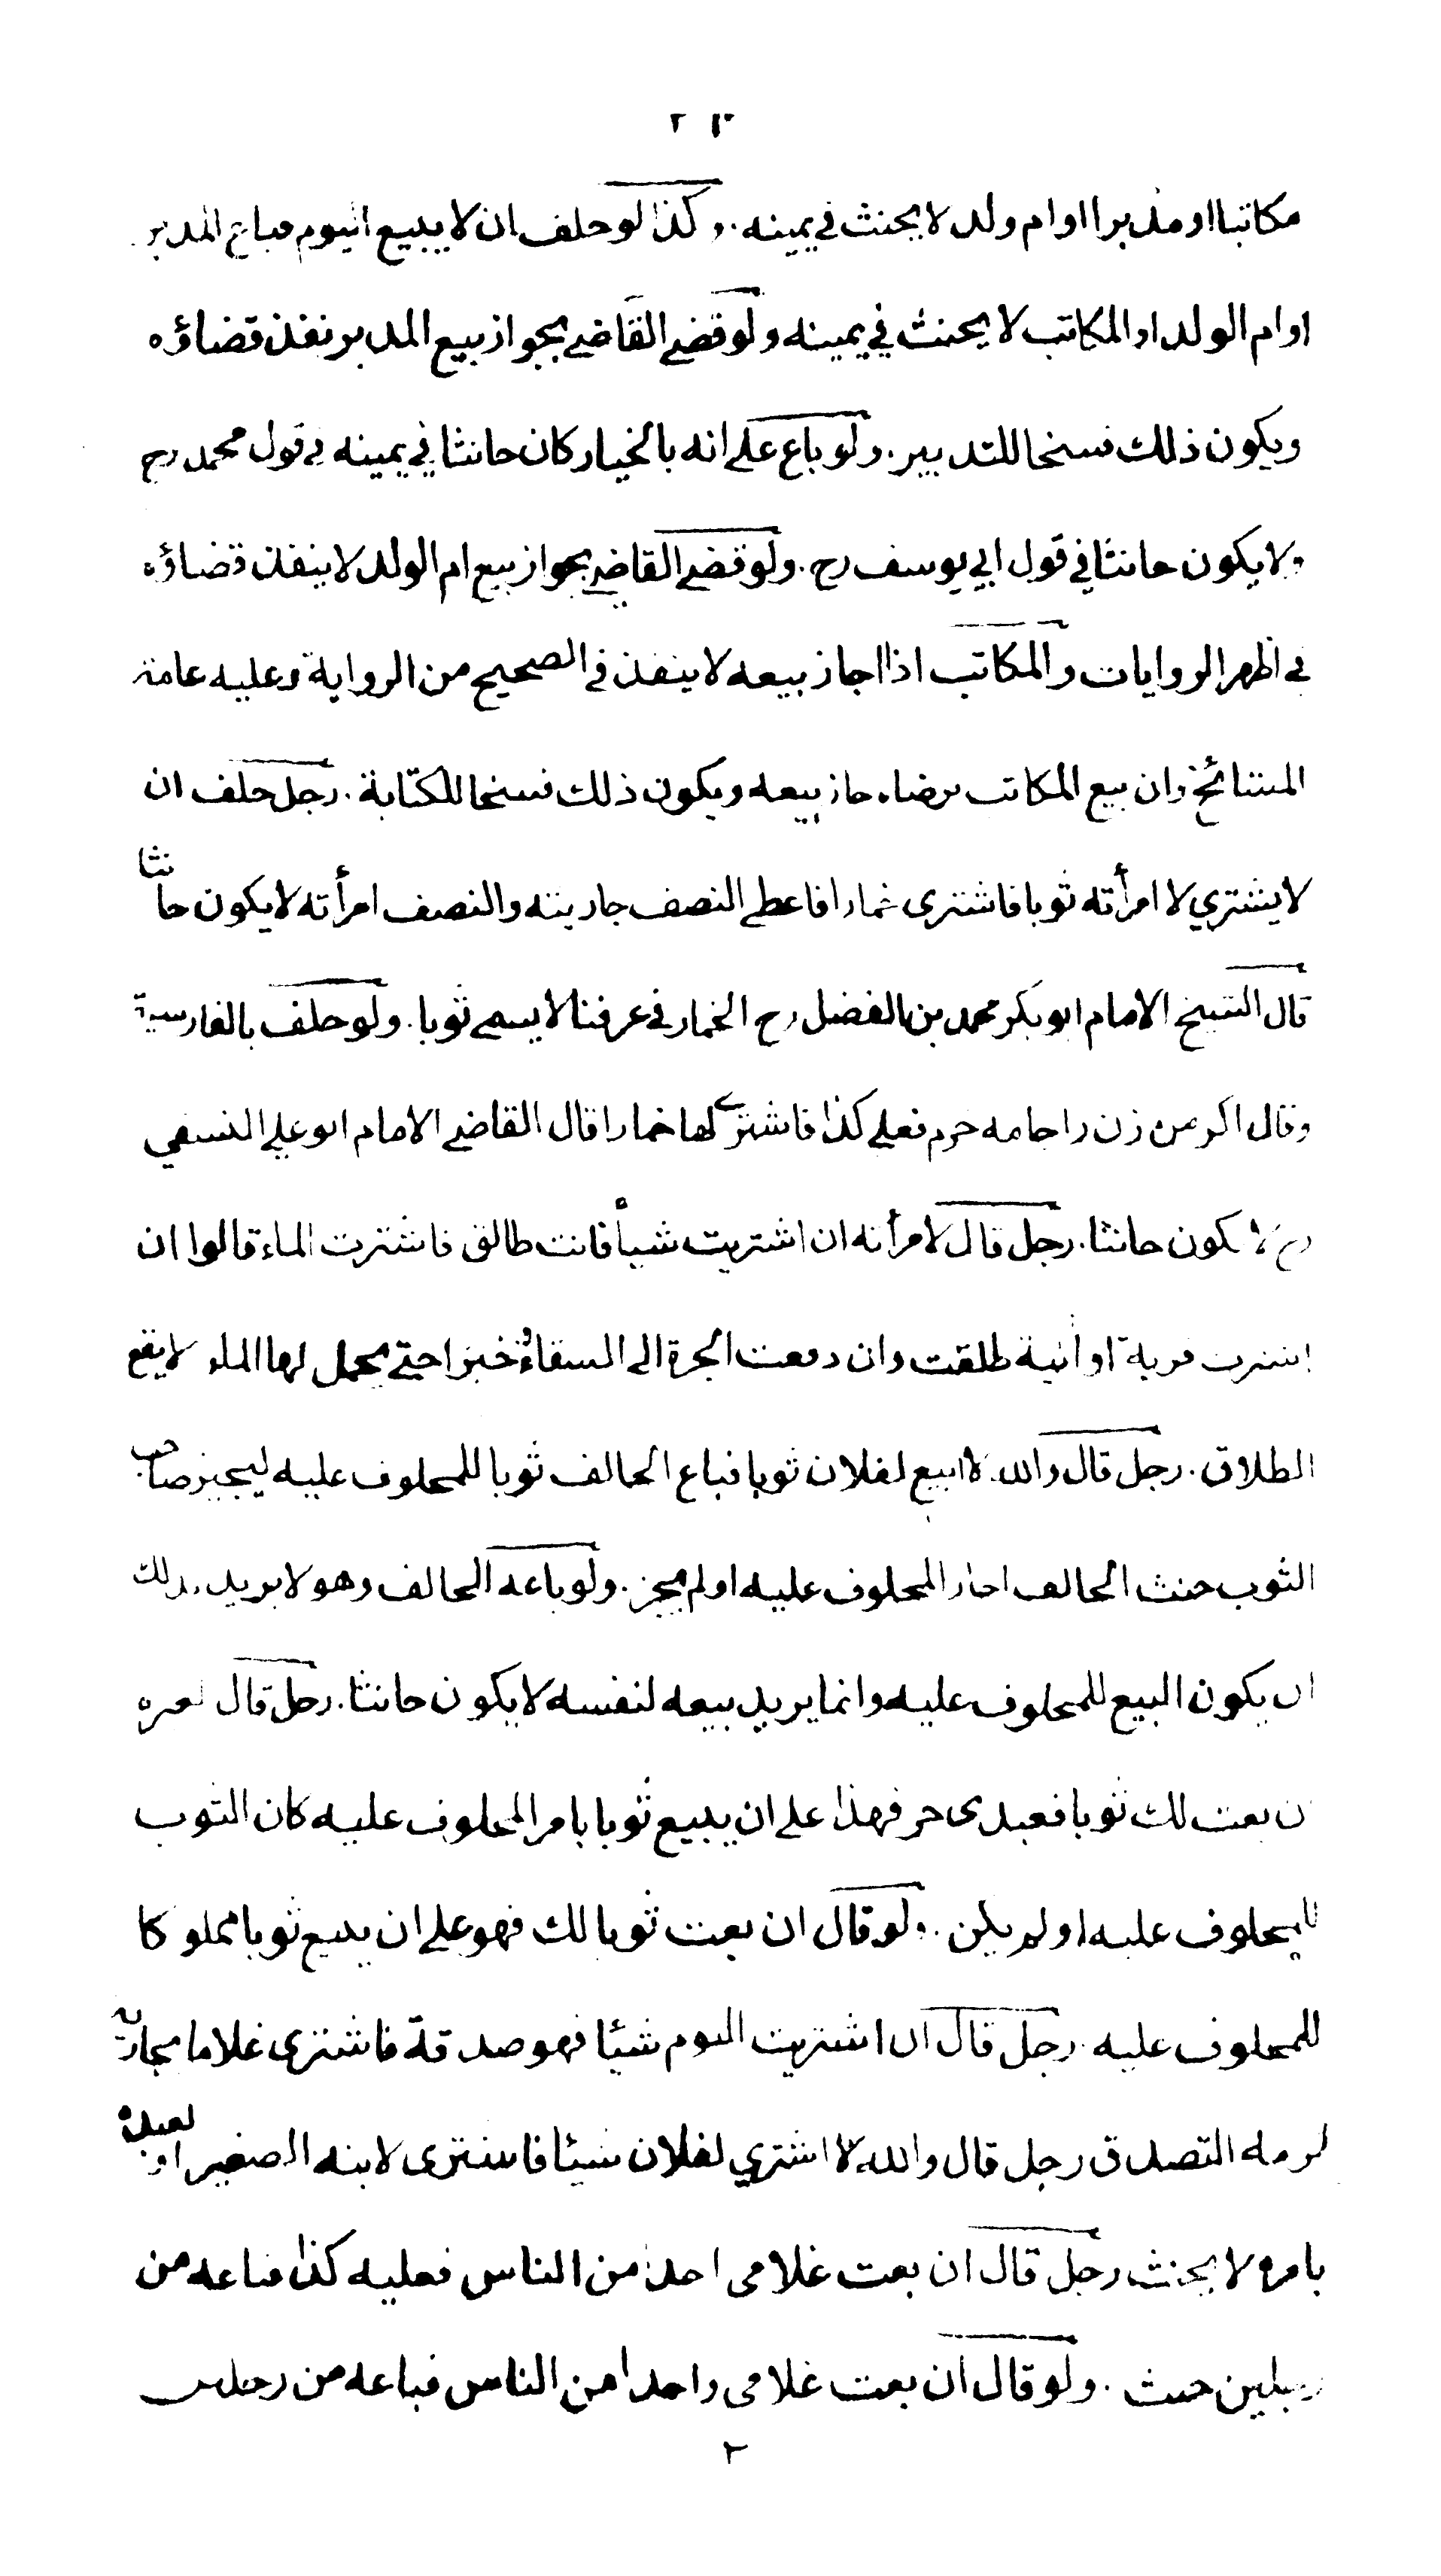 مكاتبا او مدبرا او ام ولد لا يحنث في يمينه . وكذا لو حلف ان لا يبيع اليوم فباع المدبر
او ام الولد او المكاتب لا يحنث في يمينه ولو قضى القاضي بجواز بيع المدبر نفذ قضاؤه
ويكون ذلك فسخا للتدبير . ولو باع على انه بالخيار كان حانثا في يمينه في قول محمد رح
ولا يكون حانثا في قول ابي يوسف رح . ولو قضى القاضي بجواز بيع ام الولد لا ينفذ قضاؤه
في اظهر الروايات والمكاتب اذا اجاز بيعه لا ينفذ في الصحيح من الرواية وعليه عامة
المشائخ وان بيع المكاتب برضاه جاز بيعه ويكون ذلك فسخا للكتابة . رجل حلف ان
لا يشتري لامرأته ثوبا فاشترى خمارا فاعطى النصف جاريته والنصف امرأته لا يكون حانثا
قال الشيخ الامام ابو بكر محمد بن الفضل رح الخمار في عرفنا لا يسمى ثوبا . ولو حلف بالفارسية
وقال اكر من زن را جامه خرم فعلي كذا فاشترى لها خمارا قال القاضي الامام ابو علي النسفي
رح لا يكون حانثا . رجل قال لامرأته ان اشتريت شيأ فانت طالق فاشترت الماء قالوا ان
اشترت قربة او آنية طلقت وان دفعت الجرة الى السقاء وخبزا حتى يحمل لها الماء لا يقع
الطلاق . رجل قال والله لا ابيع لفلان ثوبا فباع الحالف ثوبا للمحلوف عليه ليجيز صاحب
الثوب حنث الحالف اجاز المحلوف عليه او لم يجز . ولو باعه الحالف وهو لا يريد بذلك
ان يكون البيع للمحلوف عليه وانما يريد بيعه لنفسه لا يكون حانثا . رجل قال لغيره
ان بعت لك ثوبا فعبدي حر فهذا على ان يبيع ثوبا بامر المحلوف عليه كان الثوب
للمحلوف عليه او لم يكن . ولو قال ان بعت ثوبا لك فهو على ان يبيع ثوبا مملوكا
للمحلوف عليه . رجل قال ان اشتريت اليوم شيئا فهو صدقة فاشترى غلاما بجارية
لزمه التصدق رجل قال والله لا اشتري لفلان شيئا فاشترى لابنه الصغير او لعبده
بامره لا يحنث رجل قال ان بعت غلامي احدا من الناس فعليه كذا فباعه من
رجلين حنث . ولو قال ان بعت غلامي واحدا من الناس فباعه من رجلين
٢